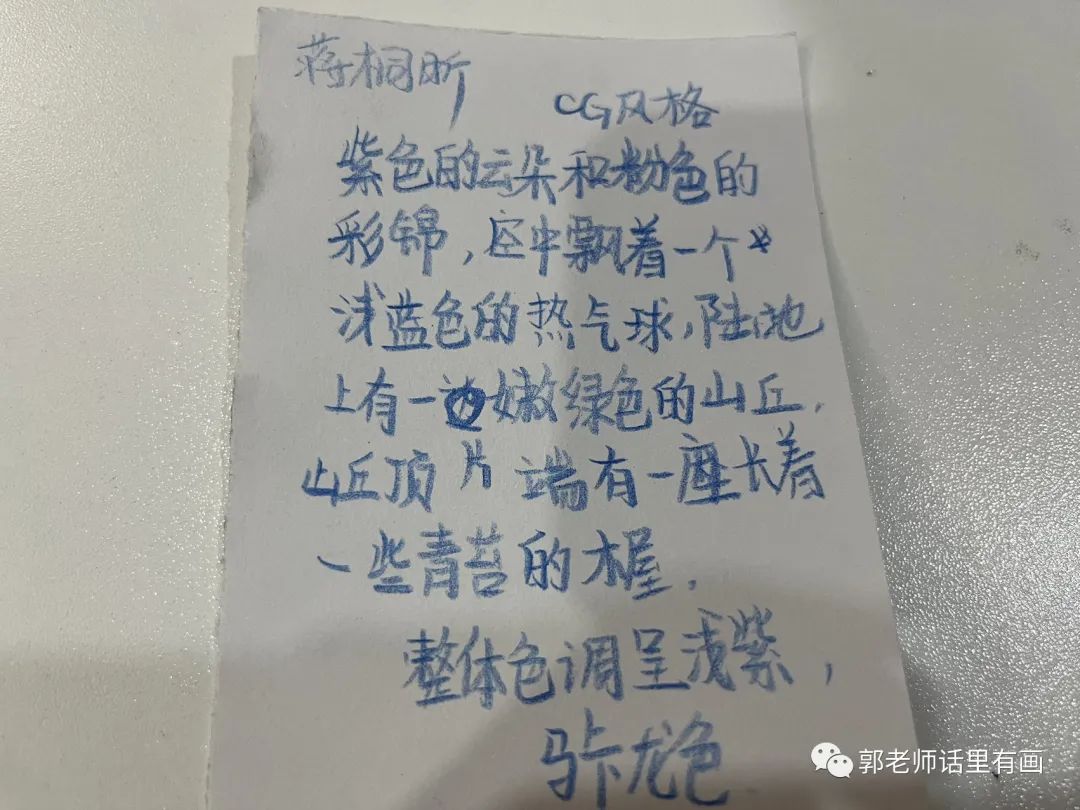 蒋桐昕
CG风格
紫色的云朵和粉色的
彩锦,空中飘着一个
浅蓝色的热气球,陆地
上有一边嫩绿色的山丘.
山丘顶片端有一座长着
一些青苔的木屋.
整体色调呈浅紫,
马卡龙色
郭老师话里有画